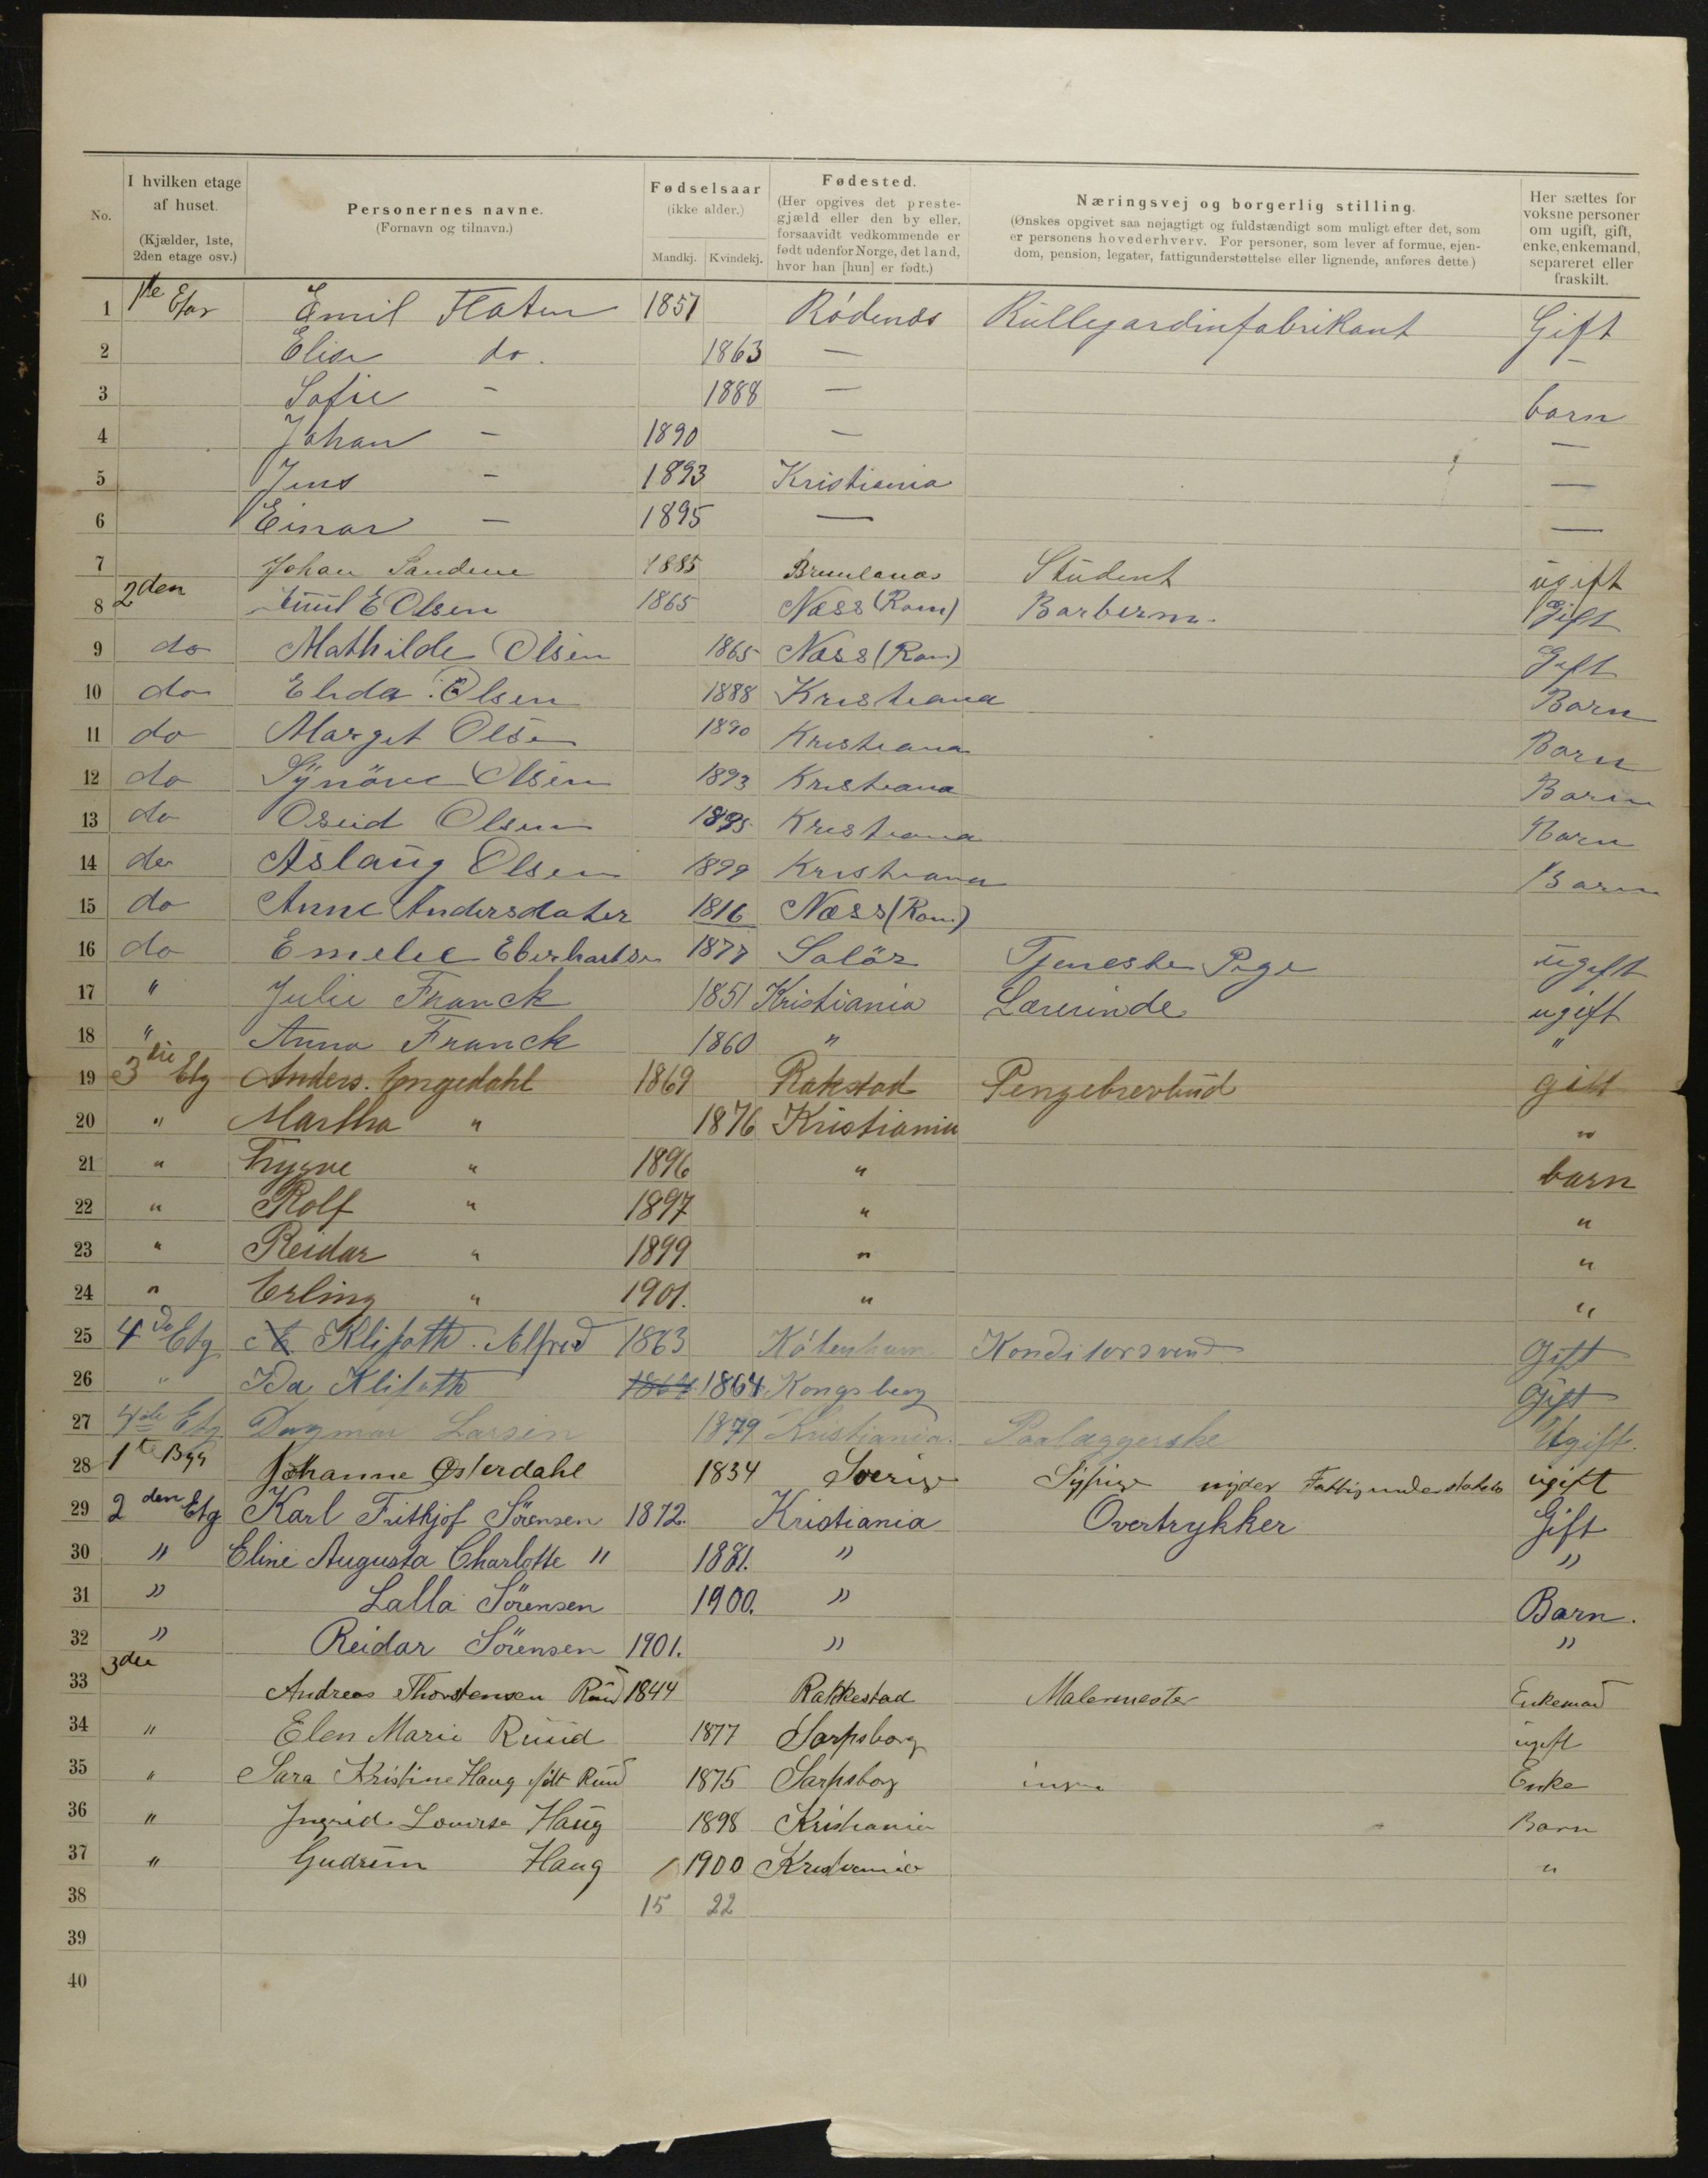 No.
I hvilken etage af huset. (Kjælder, 1ste, 2den etage osv.)
Personernes navne. (Fornavn og tilnavn.)
Fødselsaar (ikke alder.) Mandkj. Kvindekj.
Fødested. (Her opgives det prestegjæld eller den by eller, forsaavidt vedkommende er født udenfor Norge, det land, hvor han [hun] er født.)
Næringsvej og borgerlig stilling. (Ønskes opgivet saa nøjagtigt og fuldstændigt som muligt efter det, som er personens hovederhverv. For personer, som lever af formue, ejendom, pension, legater, fattigunderstøttelse eller lignende, anføres dette.)
Her sættes for voksne personer om ugift, gift, enke, enkemand, separeret eller fraskilt.
1 1ste Emil Flaten 1857 Rødenæs Rullegardinfabrikant Gift
2 Elise do. 1863 — —
3 Sofie — 1888 — barn
4 Johan — 1890 — —
5 Jens — 1893 Kristiania —
6 Einar — 1895 — —
7 Johan Sandene 1885 Brunlanæs Student ugift
8 2den Emil E Olsen 1865 Næss (Rom) Barberm. Gift
9 do Mathilde Olsen 1865 Næss (Rom) Gift
10 do Elida Olsen 1888 Kristiana Barn
11 do Margit Olsen 1890 Kristiana Barn
12 do Synöve Olsen 1893 Kristiana Barn
13 do Olsen 1895 Kristiana Barn
14 do Aslaug Olsen 1899 Kristiana Barn
15 do Anne Andersdater 1816 Næss (Rom)
16 do Emelie Eberhartsen 1877 Solör Tjeneste Pige ugift
17 " Julie Franck 1851 Kristiania Lærerinde ugift
18 " Anna Franck 1860 " "
19 3die Etg Anders. Engedahl 1869 Rakstad Pengebrevbud gift
20 " Martha " 1876 Kristiania "
21 " Trygve " 1896 " barn
22 " Rolf " 1897 " "
23 " Reidar " 1899 " "
24 " Erling " 1901. " "
25 4de Etg Klifoth. Alfred 1863 Köbenhavn Konditorsvend Gift
26 " Ida Klifoth 1864 1864 Kongsberg Gift
27 4de Etg Dagmar Larsen 1879 Kristiania. Paalæggerske Ugift.
28 1te Byg Johanne Østerdahl 1834 Sverige Sypige nyder Fattigunderstøttelse ugift
29 2den Etg Karl Fritkjof Sörensen 1872. Kristiania Overtrykker Gift
30 " Eline Augusta Charlotte " 1881. " "
31 " Lalla Sörensen 1900. " Barn.
32 " Reidar Sörensen 1901. " "
33 3die Andreas Thorstensen Ruud 1844 Rakkestad Malermester Enkemand
34 " Elen Marie Ruud 1877 Sarpsborg ugift
35 " Sara Kristine Haug født Ruud 1875 Sarpsborg ingen Enke
36 " Ingrid Lovise Haug 1898 Kristiania Barn
37 " Gudrun Haug 1900 Kristiania "
38 15 22
39
40